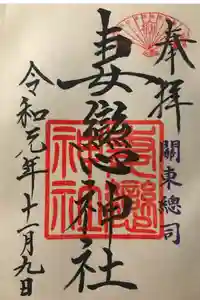 奉拝
關東總司
妻戀神社
妻戀神社
令和元年十一月九日